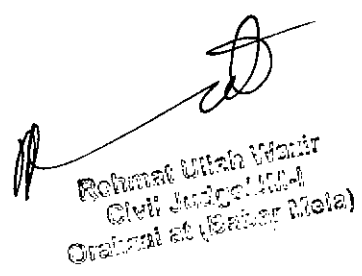 Rehmat Ullah Wazir
Civil Judge/JM-I
Orakzai at (Babar Mela)